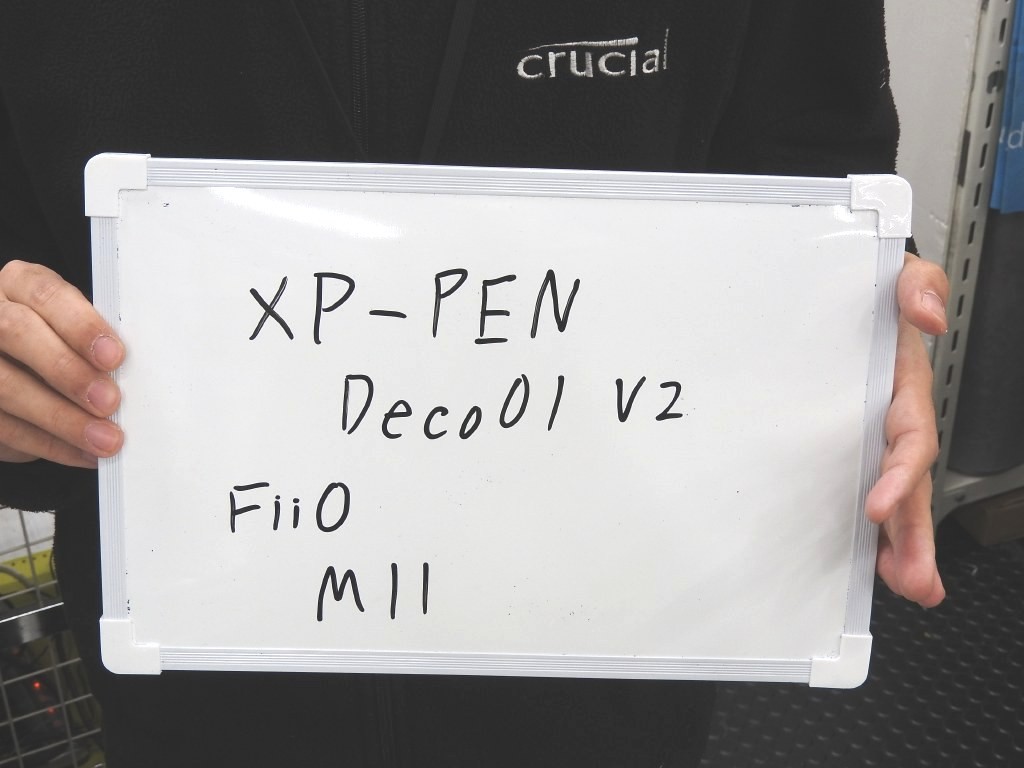 crucial
XP-PEN
Deco01 V2
FiiO
M11